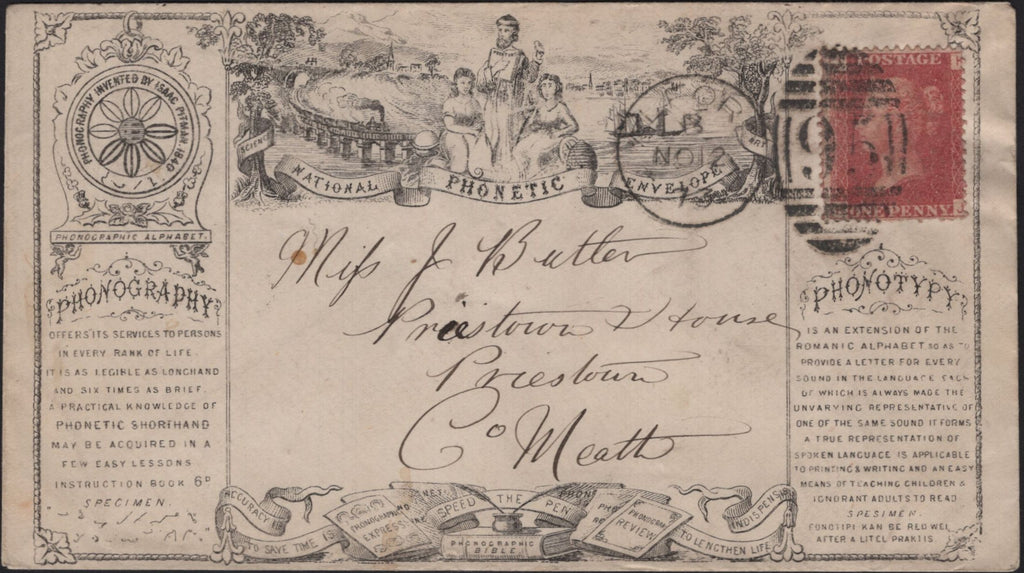 PHONOGRAPHY INVENTED BY ISAAC PITMAN. 1840
PHONOGRAPHIC ALPHABET.
SCIENCE
NATIONAL
PHONETIC
ENVELOPE
ART
NO 12
POSTAGE
ONE PENNY
PHONOGRAPHY
OFFERS ITS SERVICES TO PERSONS
IN EVERY RANK OF LIFE.
IT IS AS LEGIBLE AS LONGHAND
AND SIX TIMES AS BRIEF.
A PRACTICAL KNOWLEDGE OF
PHONETIC SHORTHAND
MAY BE ACQUIRED IN A
FEW EASY LESSONS
INSTRUCTION BOOK 6D
SPECIMEN.
Miss J Butler
Priestown House
Priestown
Co Meath
PHONOTYPY
IS AN EXTENSION OF THE
ROMANIC ALPHABET SO AS TO
PROVIDE A LETTER FOR EVERY
SOUND IN THE LANGUAGE EACH
OF WHICH IS ALWAYS MADE THE
UNVARYING REPRESENTATIVE OF
ONE OF THE SAME SOUND IT FORMS
A TRUE REPRESENTATION OF
SPOKEN LANGUAGE IS APPLICABLE
TO PRINTING & WRITING AND AN EASY
MEANS OF TEACHING CHILDREN &
IGNORANT ADULTS TO READ
SPESIMEN.
FONOTIPI KAN BE RED WEL
AFTER A LITEL PRAKTIS.
ACCURACY IS
SPEED THE PEN
INDISPENS
TO SAVE TIME IS
TO LENGTHEN LIFE
PHONOGRAPHIC EXPRESS
PHONOGRAPHIC BIBLE
PHONOGRAPHIC REVIEW